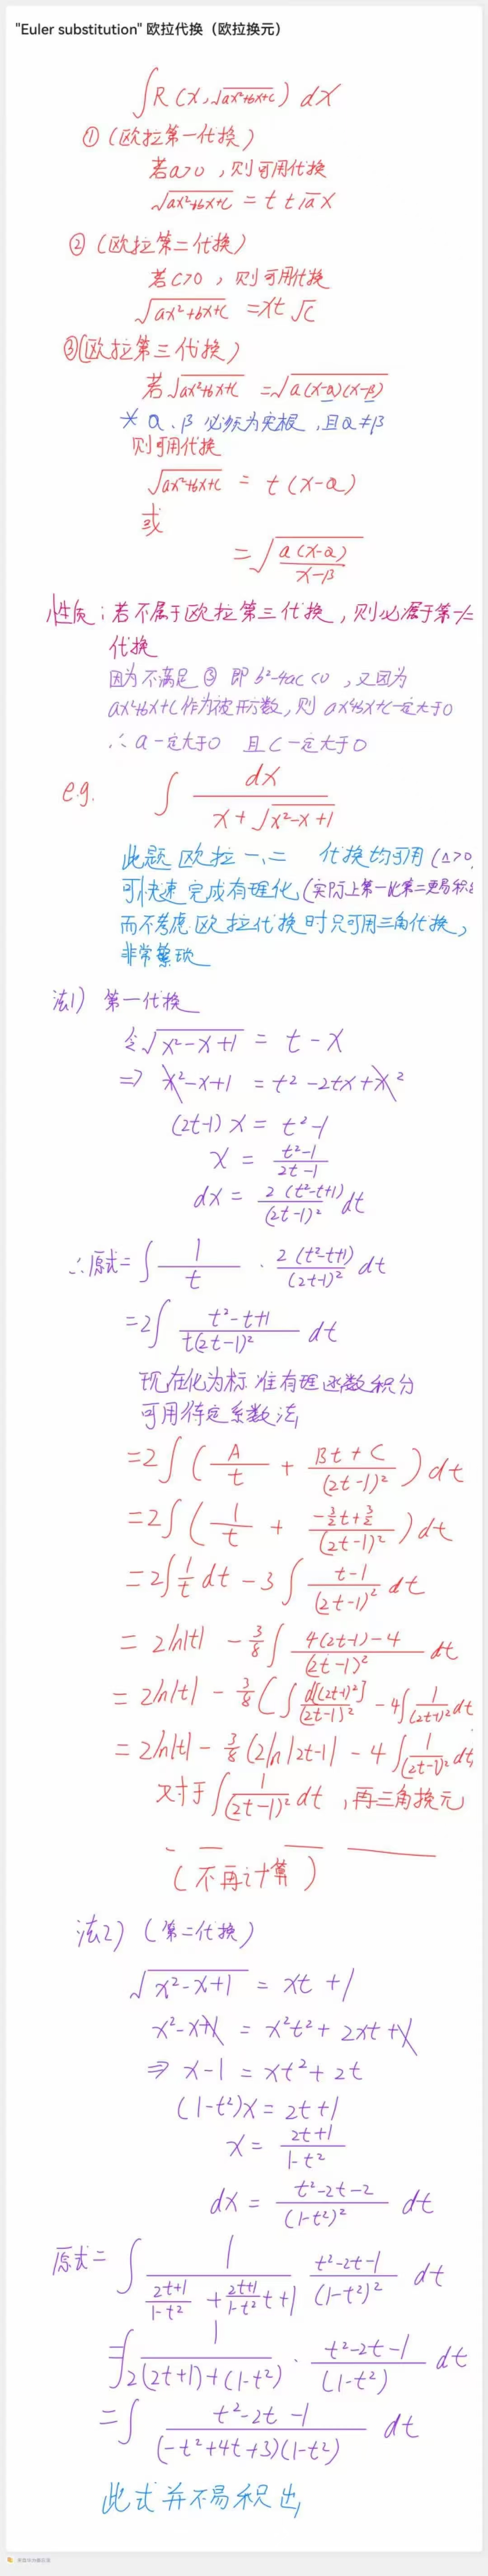 "Euler substitution" 欧拉代换（欧拉换元）
∫R(x,√ax²+bx+c) dx
①（欧拉第一代换）
若a>0，则可用代换
√ax²+bx+c = t ± √a x
②（欧拉第二代换）
若C>0，则可用代换
√ax²+bx+c = xt √c
③(欧拉第三代换)
若√ax²+bx+c = √a(x-α)(x-β)
* α、β 必须为实根，且α≠β
则可用代换
√ax²+bx+c = t(x-α)
或
= √(a(x-α)/(x-β))
性质：若不属于欧拉第三代换，则必属于第一/二
代换
因为不满足③ 即b²-4ac<0，又因为
ax²+bx+c作为被开方数，则 ax²+bx+c一定大于0
∴ a一定大于0 且C一定大于0
e.g. ∫ dx/(x+√x²-x+1)
此题欧拉一、二 代换均可用(△>0,
可快速完成有理化(实际上第一比第二更易积
而不考虑欧拉代换时只可用三角代换，
非常繁琐
法1）第一代换
令√x²-x+1 = t-x
=> x²-x+1 = t²-2tx+x²
(2t-1)x = t²-1
x = (t²-1)/(2t-1)
dx = 2(t²-t+1)/(2t-1)² dt
∴原式=∫ 1/t · 2(t²-t+1)/(2t-1)² dt
=2∫ (t²-t+1)/(t(2t-1)²) dt
现在化为标准有理函数积分
可用待定系数法,
=2∫(A/t + (Bt+C)/(2t-1)²)dt
=2∫(1/t + (-3/2t+3/2)/(2t-1)²)dt
=2∫1/t dt - 3∫ (t-1)/(2t-1)² dt
= 2ln|t| - 3/8∫ (4(2t-1)-4)/(2t-1)² dt
= 2ln|t| - 3/8(∫ d[(2t-1)²]/(2t-1)² - 4∫1/(2t-1)² dt
= 2ln|t| - 3/8(2ln|2t-1| - 4∫1/(2t-1)² dt
对于∫1/(2t-1)² dt，再三角换元
(不再计算)
法2）(第二代换)
√x²-x+1 = xt+1
x²-x+1 = x²t²+2xt+1
=> x-1 = xt²+2t
(1-t²)x = 2t+1
x = (2t+1)/(1-t²)
dx = (t²-2t-2)/(1-t²)² dt
原式=∫ 1/((2t+1)/(1-t²) + (2t+1)/(1-t²) t+1) (t²-2t-1)/(1-t²)² dt
=∫ 1/(2(2t+1)+(1-t²)) · (t²-2t-1)/(1-t²) dt
=∫ (t²-2t-1)/((-t²+4t+3)(1-t²)) dt
此式并不易积出,